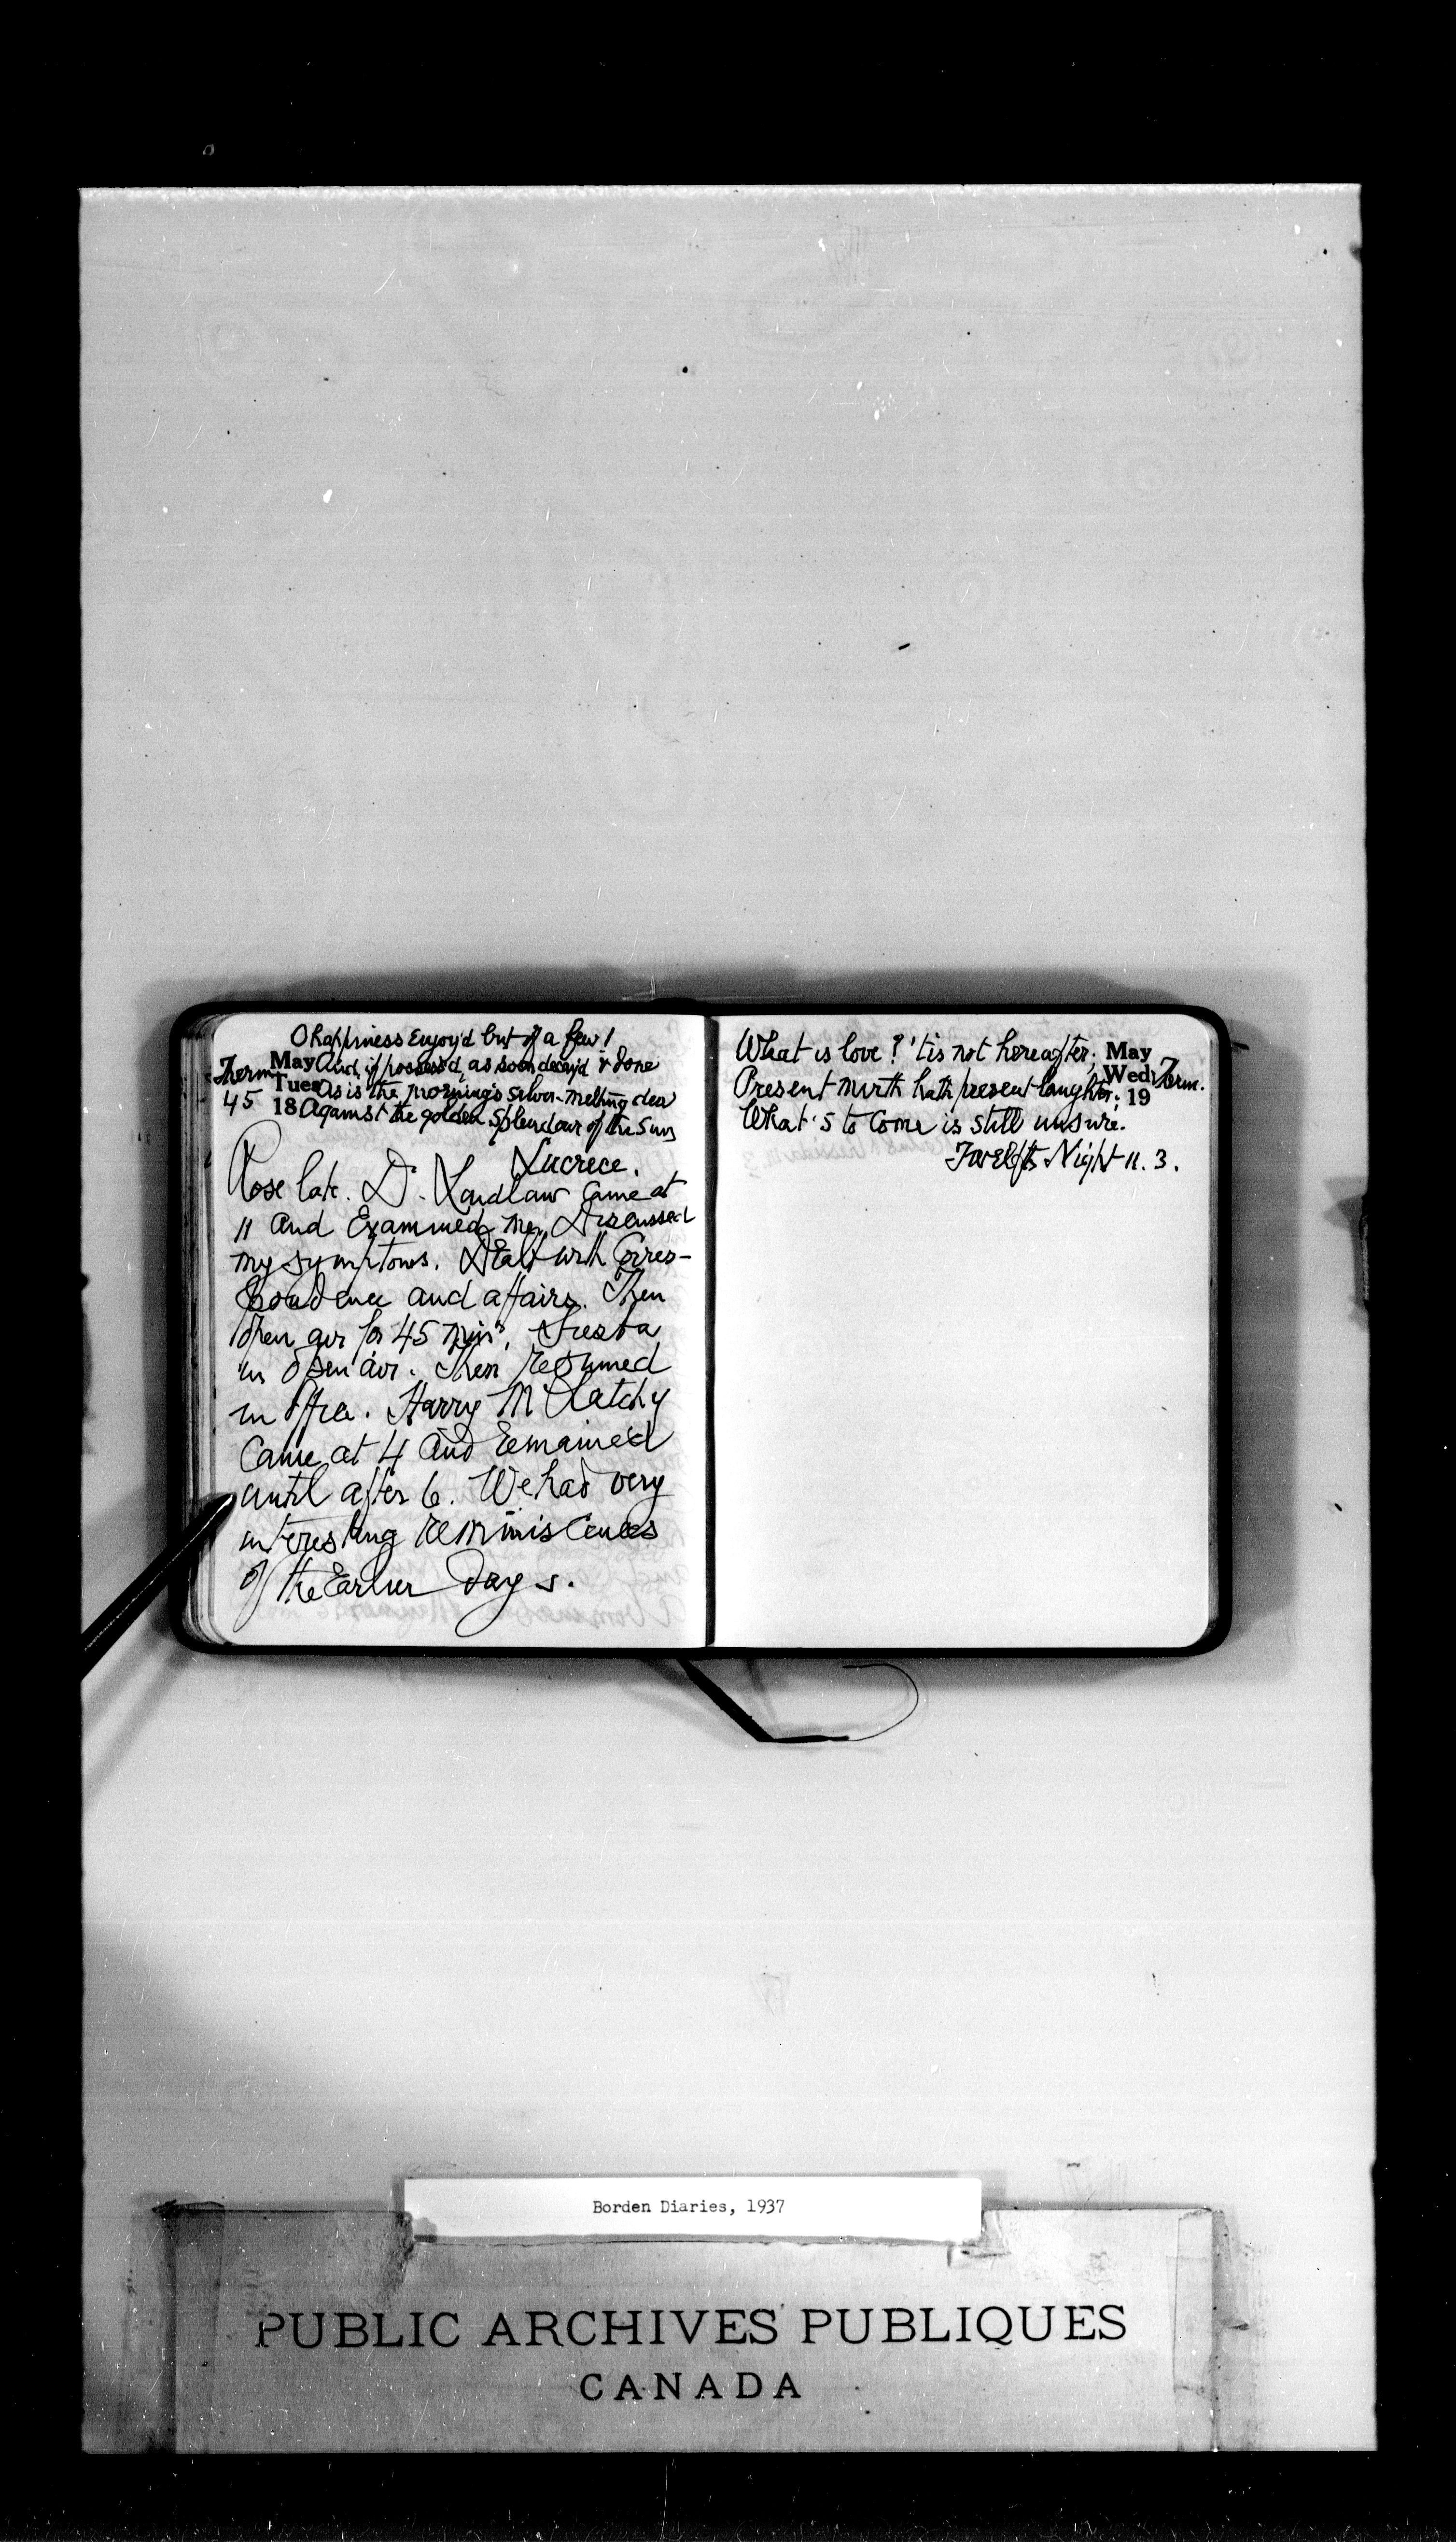 O happiness enjoy'd but of a few!
May And, if possess'd, as soon decay'd & done
Therm
Tues As is the morning's silver-melting dew
45 18 Against the golden splendour of the sun
Lucrece.
Rose late. Dr. Laidlaw came at
11 and Examined me. Discussed
my symptoms. Dealt with Corres-
pondence and affairs. Then
open air for 45 mins. Siesta
in open air. Then resumed
in office. Harry McClatchy
Came at 4 and remained
until after 6. We had very
interesting reminiscences
of the Earlier Days.
What is love? 'tis not hereafter; May
Wed Therm.
Present mirth hath present laughter; 19
What's to Come is still unsure.
Twelfth Night II. 3.
Borden Diaries, 1937
PUBLIC ARCHIVES PUBLIQUES
CANADA